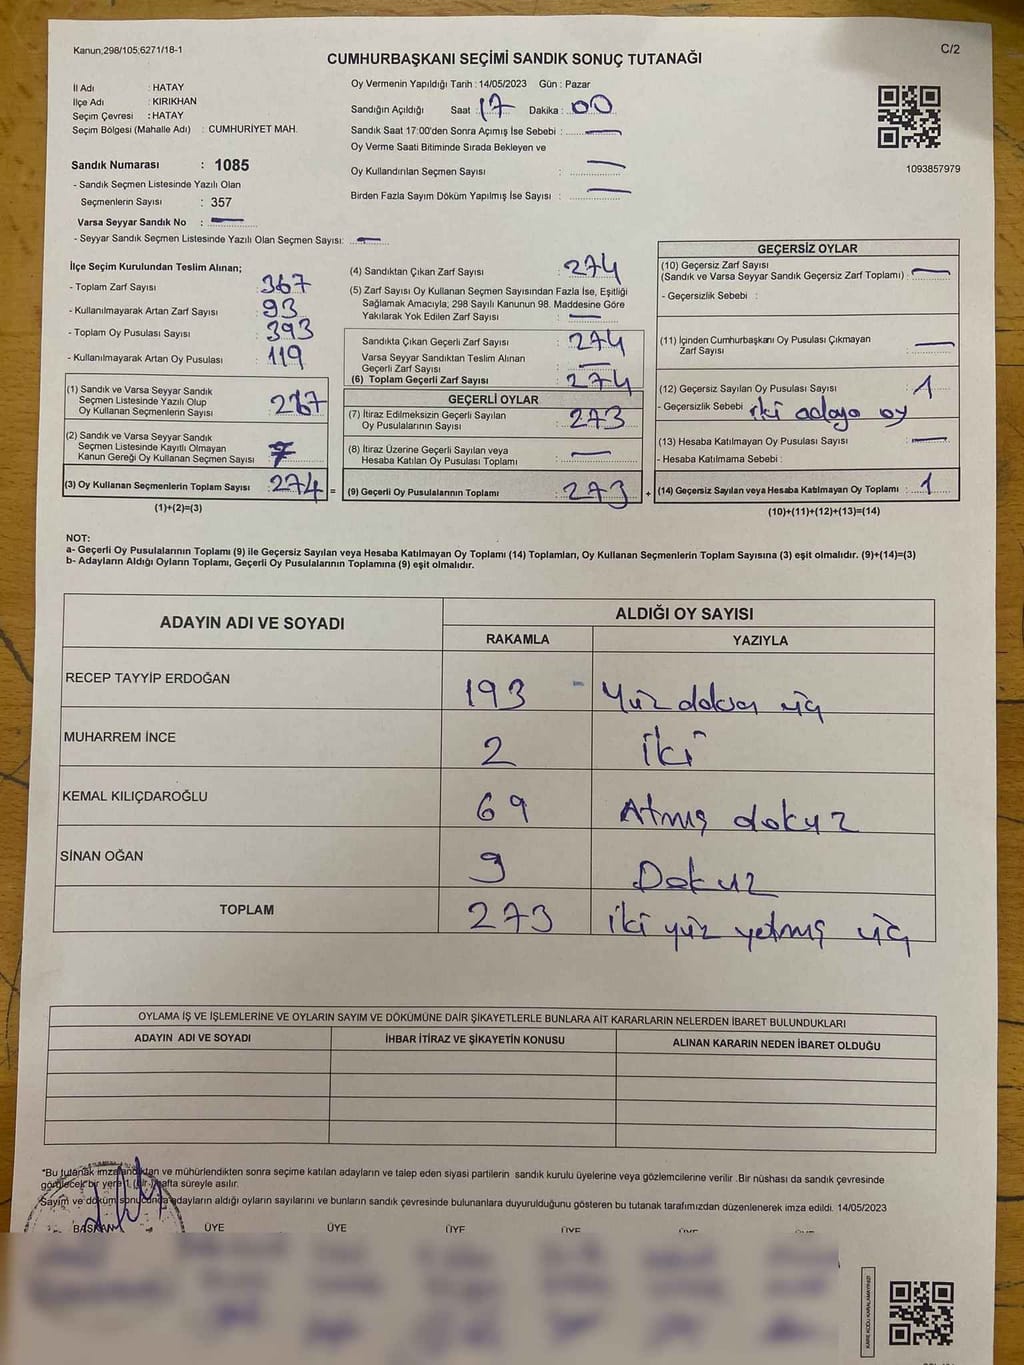 Kanun,298/105,6271/18-1
C/2
CUMHURBAŞKANI SEÇİMİ SANDIK SONUÇ TUTANAĞI
İl Adı : HATAY
İlçe Adı : KIRIKHAN
Seçim Çevresi : HATAY
Seçim Bölgesi (Mahalle Adı) : CUMHURİYET MAH.
Sandık Numarası : 1085
- Sandık Seçmen Listesinde Yazılı Olan
Seçmenlerin Sayısı : 357
Varsa Seyyar Sandık No : —
- Seyyar Sandık Seçmen Listesinde Yazılı Olan Seçmen Sayısı: —
Oy Vermenin Yapıldığı Tarih : 14/05/2023 Gün : Pazar
Sandığın Açıldığı Saat : 17 Dakika : 00
Sandık Saat 17:00'den Sonra Açımış İse Sebebi : —
Oy Verme Saati Bitiminde Sırada Bekleyen ve
Oy Kullandırılan Seçmen Sayısı : —
Birden Fazla Sayım Döküm Yapılmış İse Sayısı : —
1093857979
İlçe Seçim Kurulundan Teslim Alınan;
- Toplam Zarf Sayısı : 367
- Kullanılmayarak Artan Zarf Sayısı : 93
- Toplam Oy Pusulası Sayısı : 393
- Kullanılmayarak Artan Oy Pusulası : 119
(1) Sandık ve Varsa Seyyar Sandık
Seçmen Listesinde Yazılı Olup
Oy Kullanan Seçmenlerin Sayısı : 267
(2) Sandık ve Varsa Seyyar Sandık
Seçmen Listesinde Kayıtlı Olmayan
Kanun Gereği Oy Kullanan Seçmen Sayısı : 7
(3) Oy Kullanan Seçmenlerin Toplam Sayısı : 274 =
(1)+(2)=(3)
(4) Sandıktan Çıkan Zarf Sayısı : 274
(5) Zarf Sayısı Oy Kullanan Seçmen Sayısından Fazla İse, Eşitliği
Sağlamak Amacıyla, 298 Sayılı Kanunun 98. Maddesine Göre
Yakılarak Yok Edilen Zarf Sayısı : —
Sandıkta Çıkan Geçerli Zarf Sayısı : 274
Varsa Seyyar Sandıktan Teslim Alınan
Geçerli Zarf Sayısı : —
(6) Toplam Geçerli Zarf Sayısı : 274
GEÇERLİ OYLAR
(7) İtiraz Edilmeksizin Geçerli Sayılan
Oy Pusulalarının Sayısı : 273
(8) İtiraz Üzerine Geçerli Sayılan veya
Hesaba Katılan Oy Pusulası Toplamı : —
(9) Geçerli Oy Pusulalarının Toplamı : 273 +
GEÇERSİZ OYLAR
(10) Geçersiz Zarf Sayısı
(Sandık ve Varsa Seyyar Sandık Geçersiz Zarf Toplamı) : —
- Geçersizlik Sebebi :
(11) İçinden Cumhurbaşkanı Oy Pusulası Çıkmayan
Zarf Sayısı : —
(12) Geçersiz Sayılan Oy Pusulası Sayısı : 1
- Geçersizlik Sebebi : iki adaya oy
(13) Hesaba Katılmayan Oy Pusulası Sayısı : —
- Hesaba Katılmama Sebebi :
(14) Geçersiz Sayılan veya Hesaba Katılmayan Oy Toplamı : 1
(10)+(11)+(12)+(13)=(14)
NOT:
a- Geçerli Oy Pusulalarının Toplamı (9) ile Geçersiz Sayılan veya Hesaba Katılmayan Oy Toplamı (14) Toplamları, Oy Kullanan Seçmenlerin Toplam Sayısına (3) eşit olmalıdır. (9)+(14)=(3)
b- Adayların Aldığı Oyların Toplamı, Geçerli Oy Pusulalarının Toplamına (9) eşit olmalıdır.
ADAYIN ADI VE SOYADI ALDIĞI OY SAYISI
RAKAMLA YAZIYLA
RECEP TAYYİP ERDOĞAN 193 - Yüz doksan üç
MUHARREM İNCE 2 iki
KEMAL KILIÇDAROĞLU 69 Atmış dokuz
SİNAN OĞAN 9 Dokuz
TOPLAM 273 iki yüz yetmiş üç
OYLAMA İŞ VE İŞLEMLERİNE VE OYLARIN SAYIM VE DÖKÜMÜNE DAİR ŞİKAYETLERLE BUNLARA AİT KARARLARIN NELERDEN İBARET BULUNDUKLARI
ADAYIN ADI VE SOYADI İHBAR İTİRAZ VE ŞİKAYETİN KONUSU ALINAN KARARIN NEDEN İBARET OLDUĞU
*Bu tutanak imzalandıktan ve mühürlendikten sonra seçime katılan adayların ve talep eden siyasi partilerin sandık kurulu üyelerine veya gözlemcilerine verilir .Bir nüshası da sandık çevresinde
görülecek bir yere 1 (Bir) hafta süreyle asılır.
Sayım ve döküm sonucunda adayların aldığı oyların sayılarını ve bunların sandık çevresinde bulunanlara duyurulduğunu gösteren bu tutanak tarafımızdan düzenlenerek imza edildi. 14/05/2023
BAŞKAN ÜYE ÜYE ÜYE ÜYE